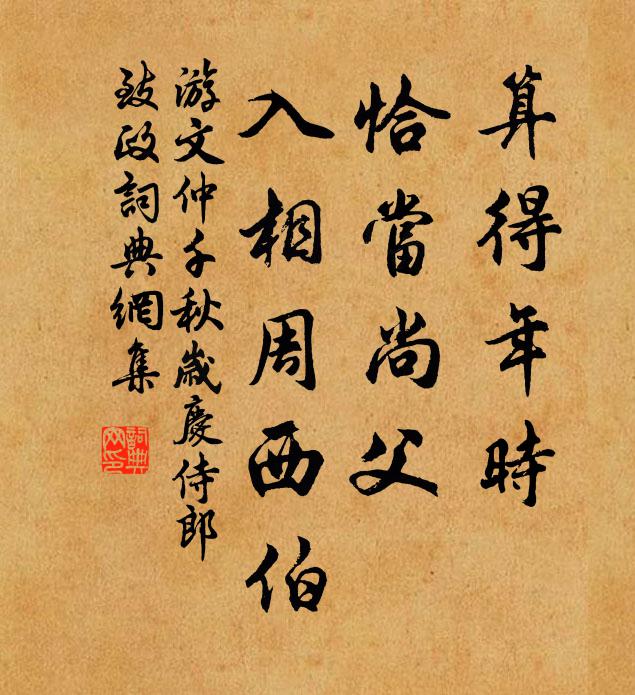 算得年時
恰當尚父
入相周西伯
游文仲千秋歲慶侍郎
致政詞典網集
詞典網印